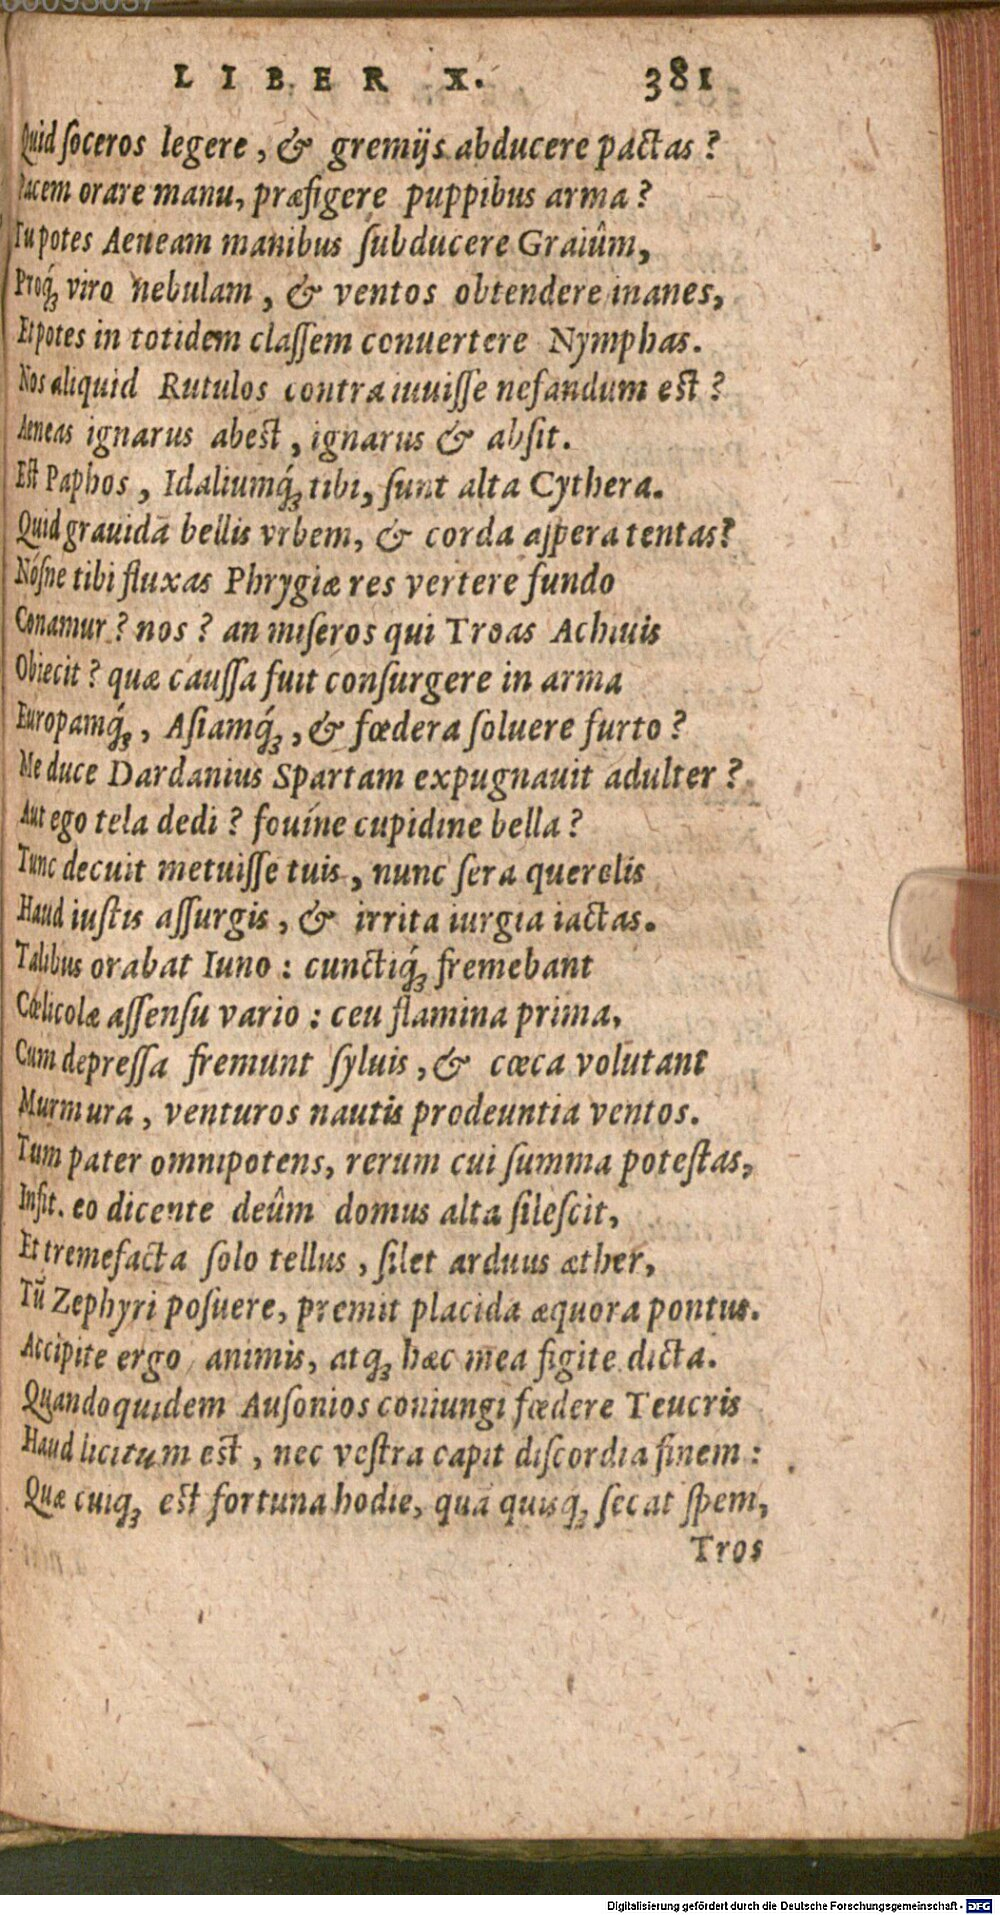 LIBER X. 381
Quid ſoceros legere, & gremijs abducere pactas?
Pacem orare manu, præfigere puppibus arma?
Tu potes Aeneam manibus ſubducere Graiûm,
Proq́ꝫ viro nebulam, & ventos obtendere inanes,
Et potes in totidem claſſem conuertere Nymphas.
Nos aliquid Rutulos contra iuuiſſe nefandum est?
Aeneas ignarus abest, ignarus & abſit.
Est Paphos, Idaliumq́ꝫ tibi, ſunt alta Cythera.
Quid grauidā bellis vrbem, & corda aſpera tentas?
Nósne tibi fluxas Phrygiæ res vertere fundo
Conamur? nos? an miſeros qui Troas Achiuis
Obiecit? quæ cauſſa fuit conſurgere in arma
Europamq́ꝫ, Aſiamq́ꝫ, & fœdera ſoluere furto?
Me duce Dardanius Spartam expugnauit adulter?
Aut ego tela dedi? fouíne cupidine bella?
Tunc decuit metuiſſe tuis, nunc ſera querelis
Haud iuſtis aſſurgis, & irrita iurgia iactas.
Talibus orabat Iuno: cunctiq́ꝫ fremebant
Cœlicolæ aſſenſu vario: ceu flamina prima,
Cum depreſſa fremunt ſyluis, & cœca volutant
Murmura, venturos nautis prodeuntia ventos.
Tum pater omnipotens, rerum cui ſumma poteſtas,
Inſit. eo dicente deûm domus alta ſileſcit,
Et tremefacta ſolo tellus, ſilet arduus æther,
Tū Zephyri poſuere, premit placida æquora pontus.
Accipite ergo animis, atqꝫ hæc mea figite dicta.
Quandoquidem Auſonios coniungi fœdere Teucris
Haud licitum est, nec veſtra capit diſcordia finem:
Quæ cuiqꝫ est fortuna hodie, quā quiſqꝫ ſecat ſpem,
Tros
Digitalisierung gefördert durch die Deutsche Forschungsgemeinschaft - DFG